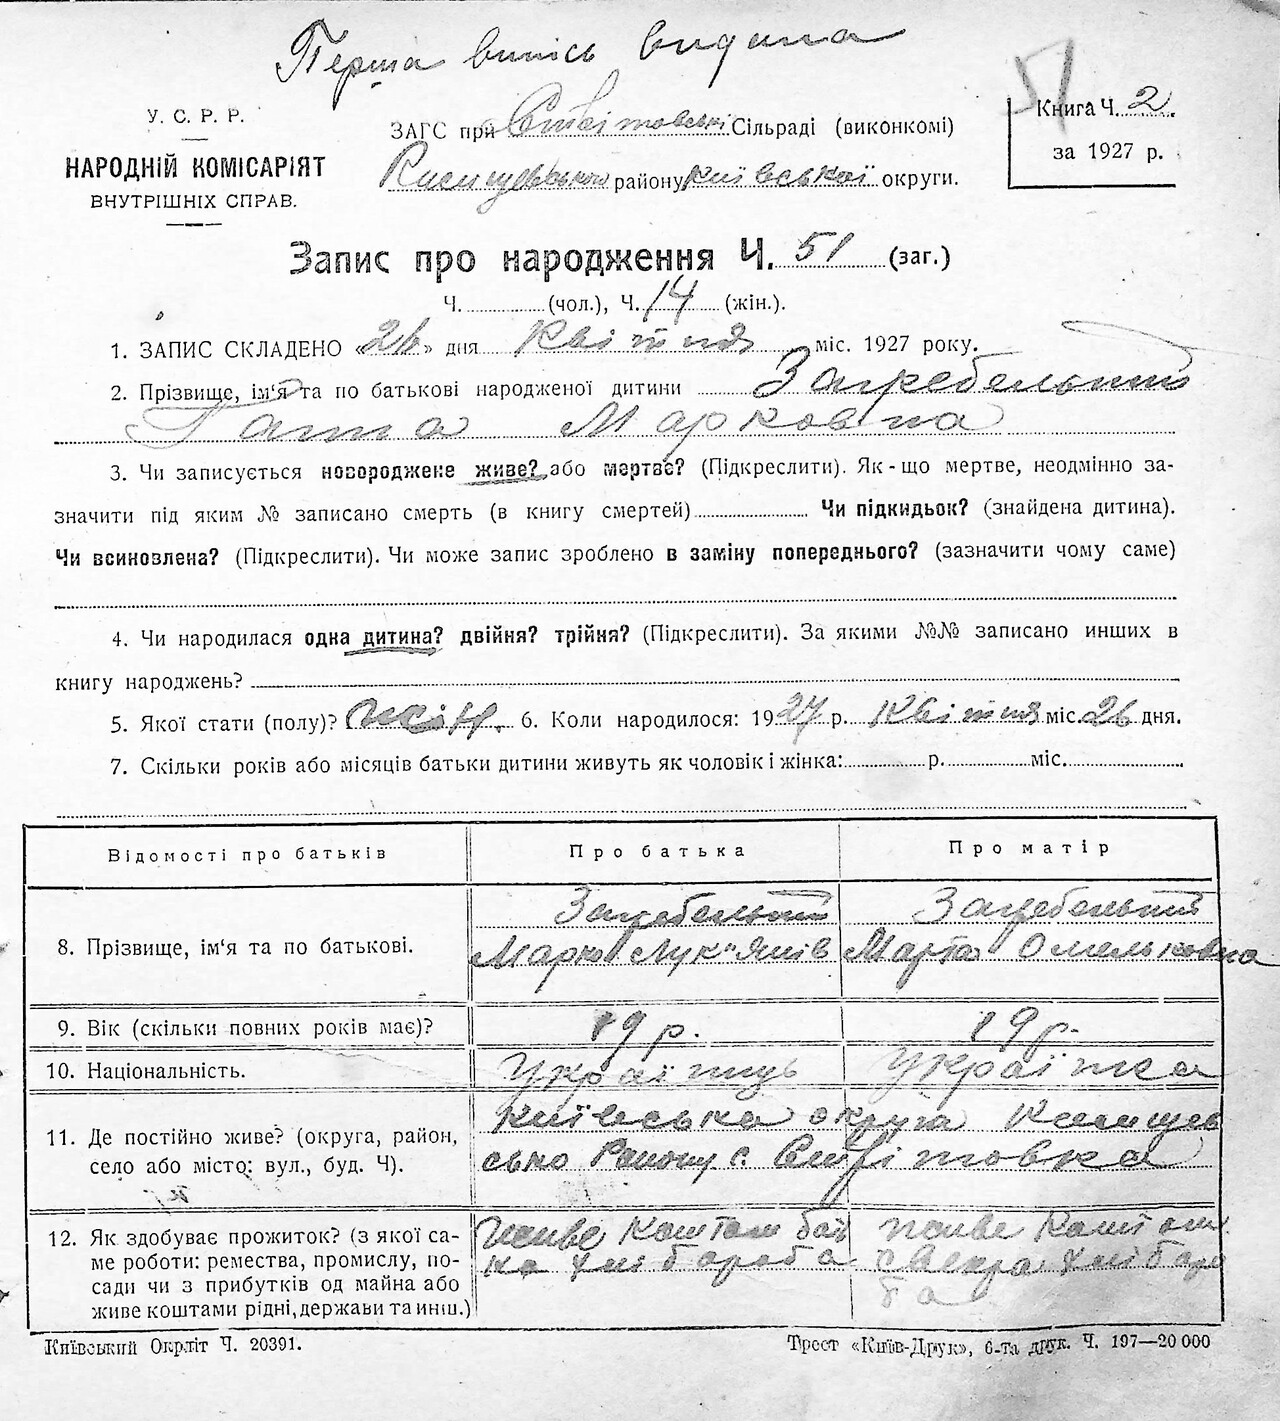 Перша випісь видана
51
У. С. Р. Р.
НАРОДНІЙ КОМІСАРІЯТ
ВНУТРІШНІХ СПРАВ.
ЗАГС при Сільраді (виконкомі)
району Київської округи.
Книга Ч. 2
за 1927 р.
Запис про народження Ч. 51 (заг.)
Ч. (чол.), Ч. 14 (жін.).
1. ЗАПИС СКЛАДЕНО «26» дня Квітня міс. 1927 року.
2. Прізвище, ім'я та по батькові народженої дитини Загребельний
Ганна Марковна
3. Чи записується новороджене живе? або мертве? (Підкреслити). Як-що мертве, неодмінно за-
значити під яким № записано смерть (в книгу смертей) Чи підкидьок? (знайдена дитина).
Чи всиновлена? (Підкреслити). Чи може запис зроблено в заміну попереднього? (зазначити чому саме)
4. Чи народилася одна дитина? двійня? трійня? (Підкреслити). За якими №№ записано инших в
книгу народжень?
5. Якої стати (полу)? жін. 6. Коли народилось: 1927 р. Квітня міс. 26 дня.
7. Скільки років або місяців батьки дитини живуть як чоловік і жінка: р. міс.
Відомості про батьків Про батька Про матір
8. Прізвище, ім'я та по батькові. Загребельний Загребельний
Марко Лук"янів Марта Омельковна
9. Вік (скільки повних років має)? 19 р. 19 р.
10. Національність. Українць Українка
11. Де постійно живе? (округа, район, Київська округа
село або місто: вул., буд. Ч). Району с.
12. Як здобуває прожиток? (з якої са- живе коштом бать живе коштом
ме роботи: ремества, промислу, по- ка хлібароба свекра хлібаро
сади чи з прибутків од майна або ба
живе коштами рідні, держави та инш.)
Київський Окрліт Ч. 20391.
Трест «Київ-Друк», 6-та друк. Ч. 197—20 000